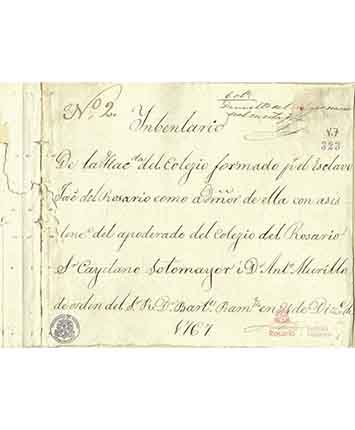 N.º 2.
Inbentario
V. 7
323
De la Hac.da del Colegio formado p.r el Esclavo
Jac.º del Rosario como a Dmör de ella con asis
tenc.a del apoderado del Colegio del Rosario
S.r Cayetano Sotomayor i D.n Ant.º Murillo
de orden del S.r R. D.n Bart.e Ram.z en 21 de Diz.e de
1767
Rosario